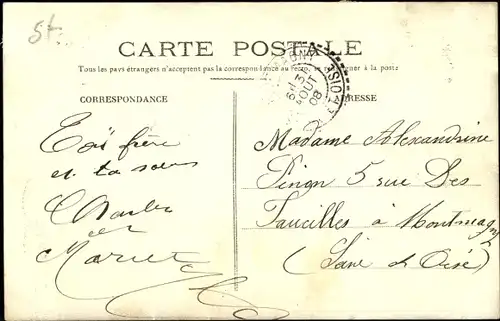 St.
CARTE POSTALE
Tous les pays étrangers n'acceptent pas la correspondance au recto se renseigner à la poste
CORRESPONDANCE
ADRESSE
6H 3
AOUT
08
Ton frère
et ta soeur
Charles
et
Madame Alexandrine
5 rue Des
Faucilles à Montmagny
(Seine et Oise)